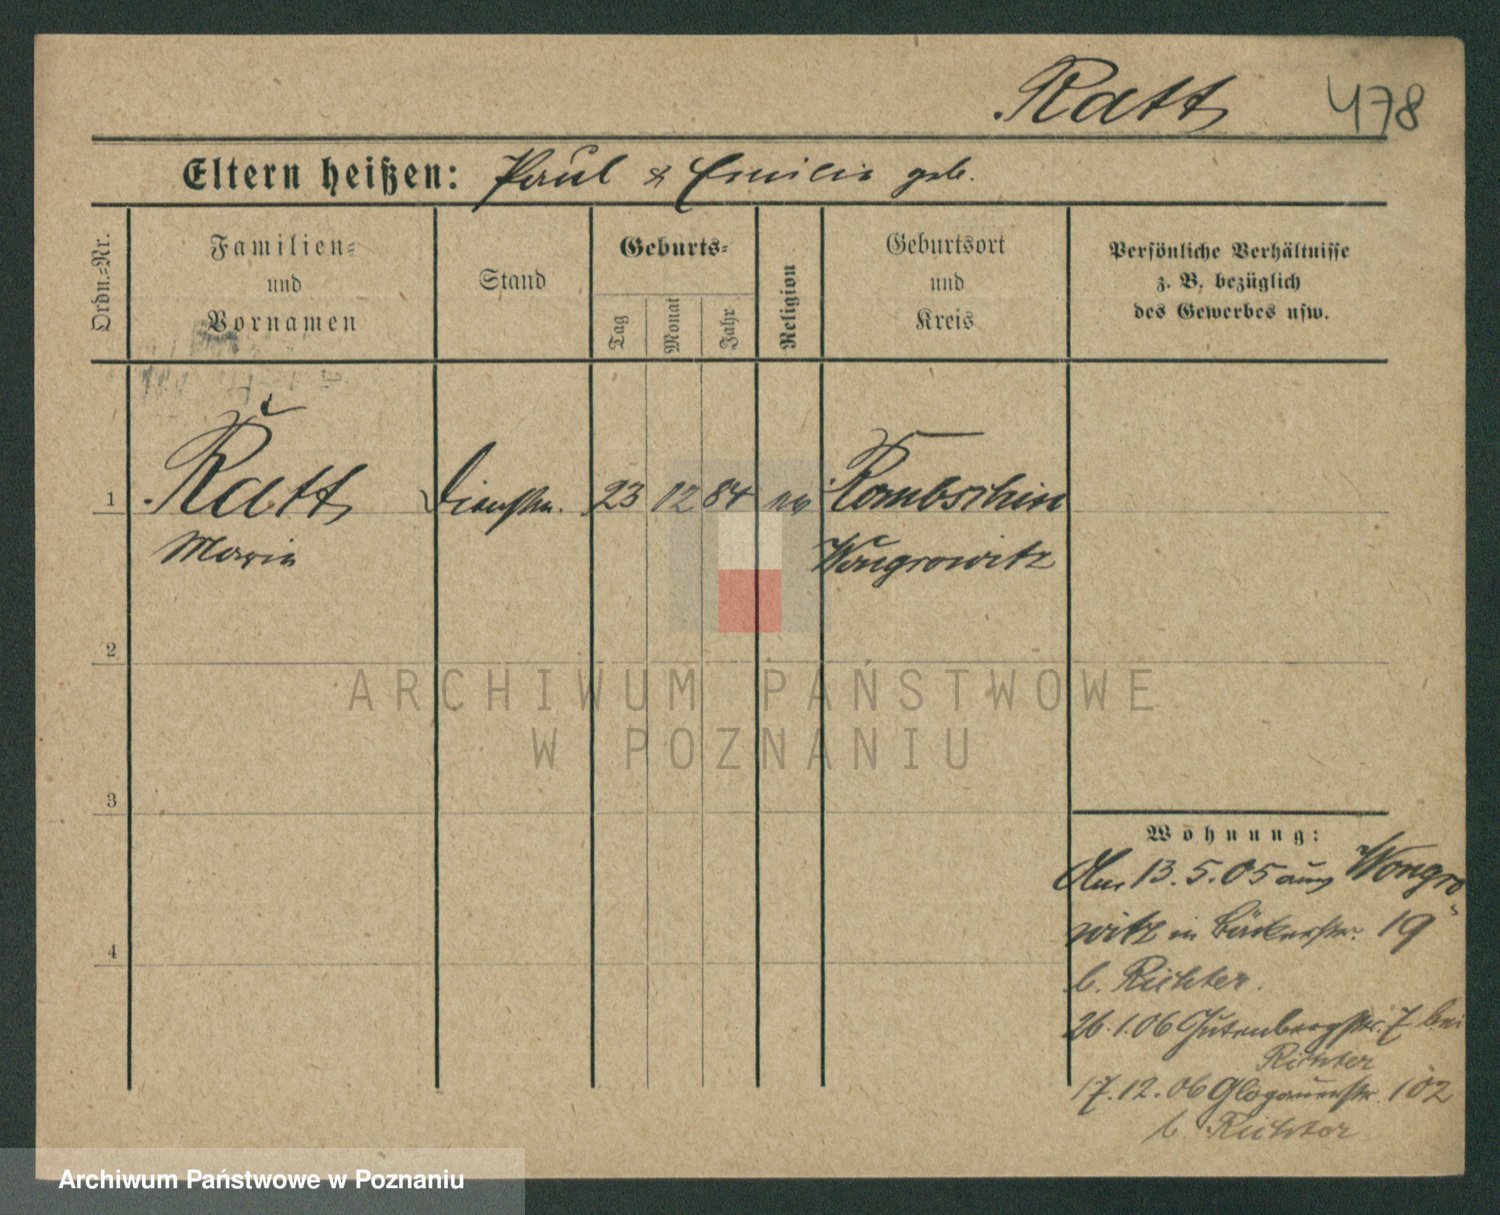 Ratt 478
Eltern heißen: Paul & Emilie geb.
Ordn.-Nr.
Familien-
und
Vornamen
Stand
Geburts-
Tag
Monat
Jahr
Religion
Geburtsort
und
Kreis
Persönliche Verhältnisse
z. B. bezüglich
des Gewerbes usw.
1 Ratt Dienstm. 23 12 84 ev Kombschin
Marie Wongrowitz
2
ARCHIWUM PAŃSTWOWE
W POZNANIU
3
Wohnung:
13.5.05 aus Wongro-
witz in Bäckerstr. 19
b. Richter.
4
26.1.06 Gutenbergstr. 7 bei
Richter
17.12.06 Glogauerstr. 102
b. Richter
Archiwum Państwowe w Poznaniu